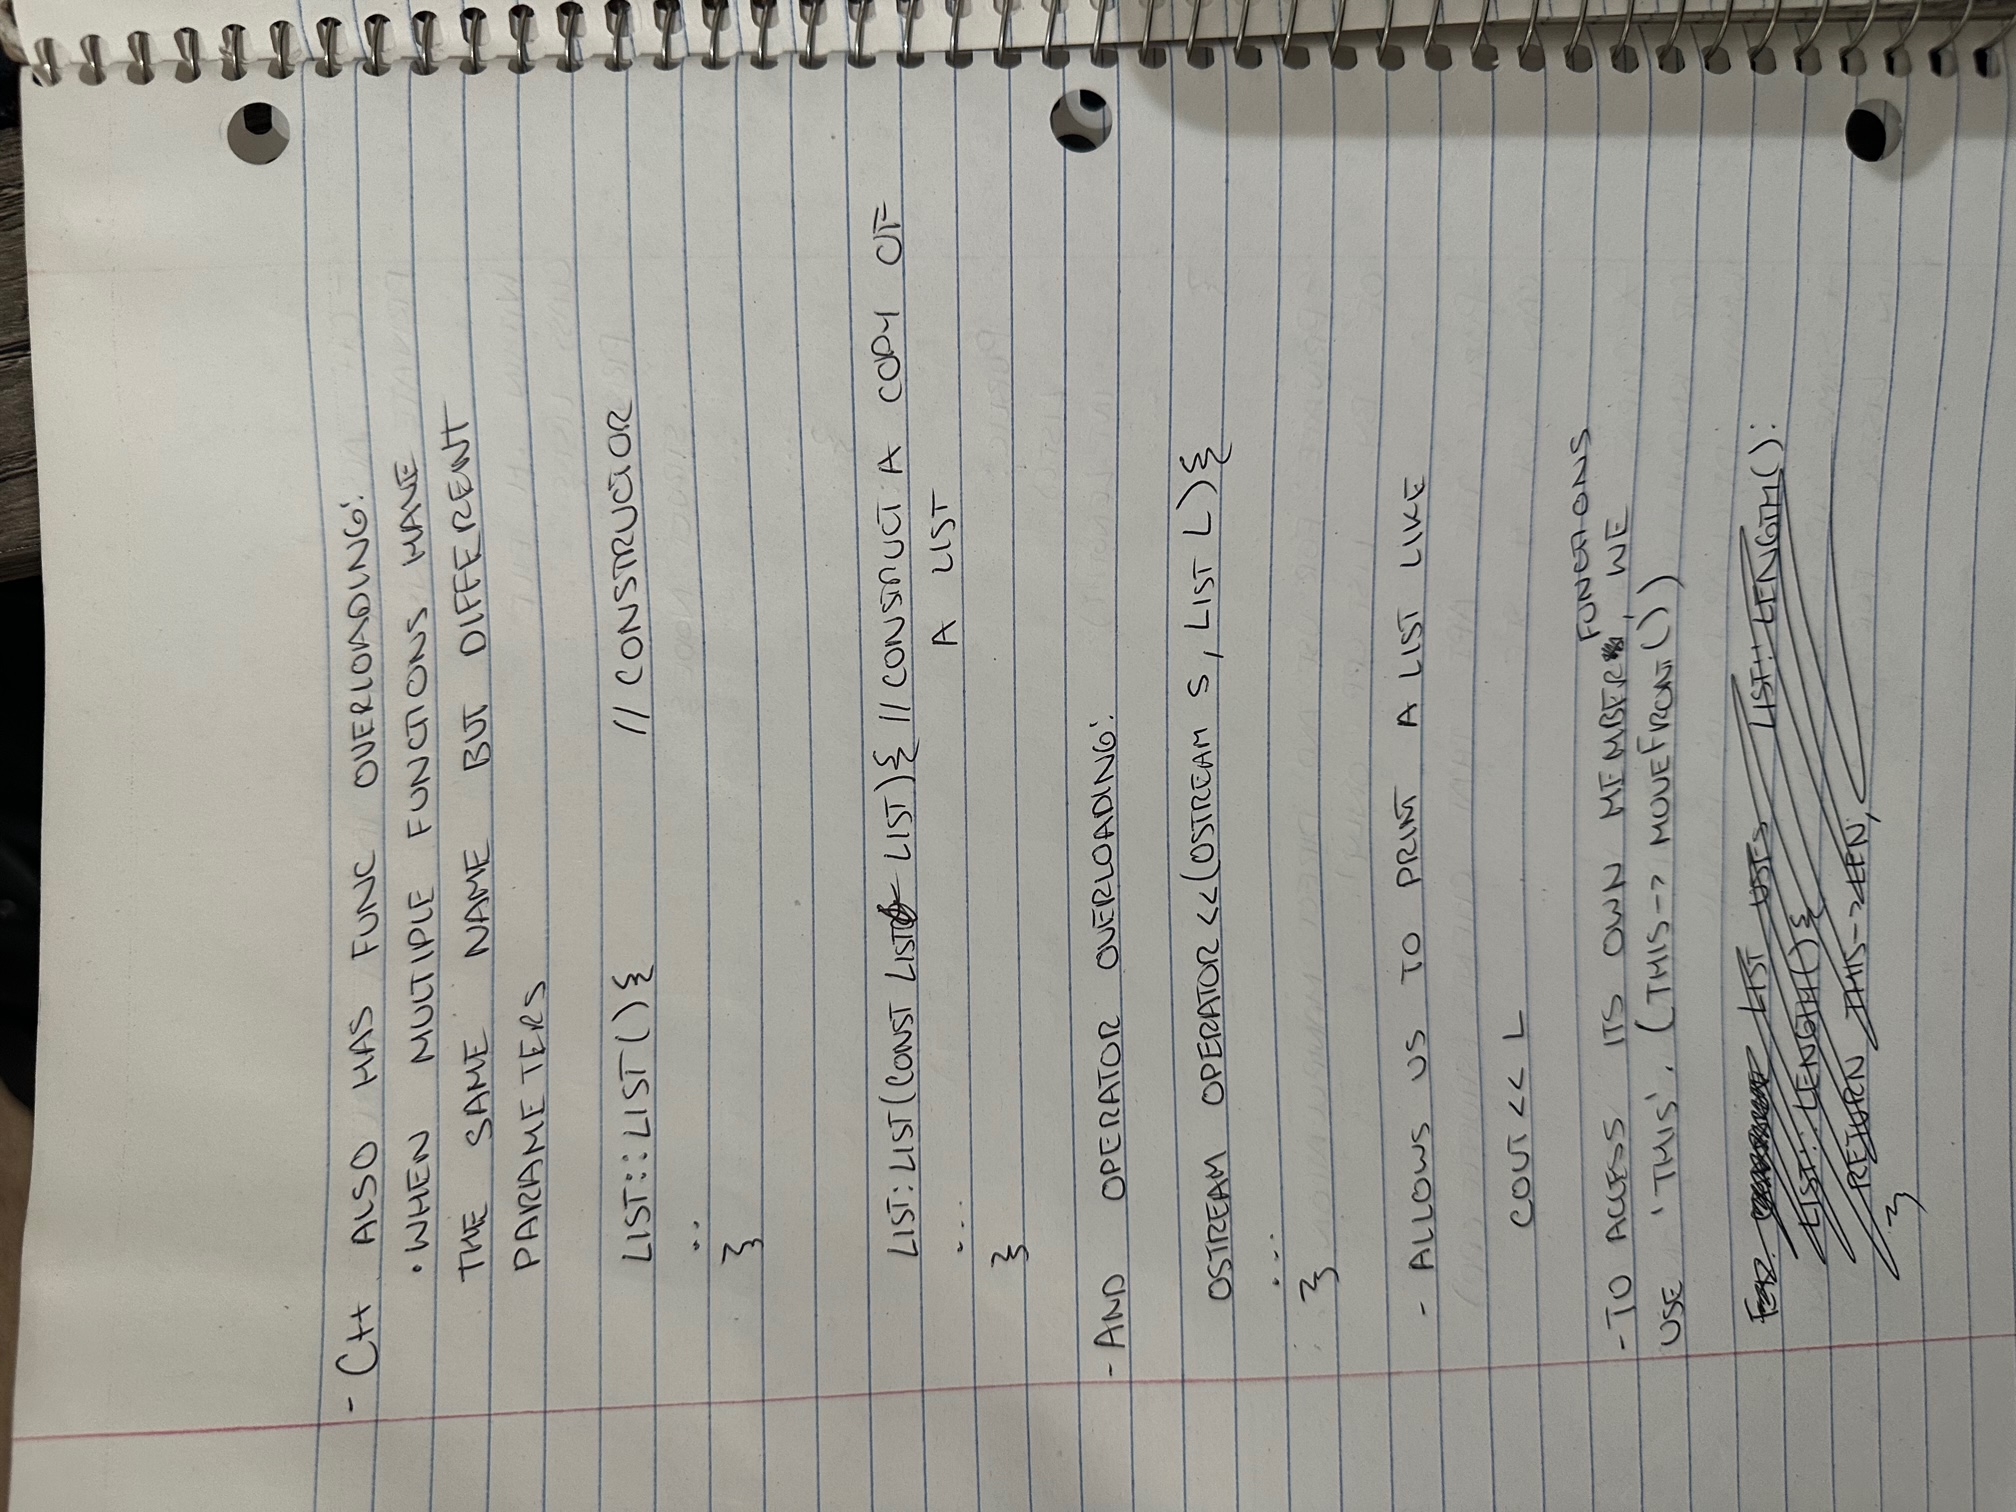 - C++ ALSO HAS FUNC OVERLOADING:
• WHEN MULTIPLE FUNCTIONS HAVE
THE SAME NAME BUT DIFFERENT
PARAMETERS
LIST::LIST(){ // CONSTRUCTOR
..
}
LIST:LIST(CONST LIST& LIST){ // CONSTRUCT A COPY OF
A LIST
...
}
- AND OPERATOR OVERLOADING:
OSTREAM OPERATOR <<(OSTREAM S, LIST L){
...
}
- ALLOWS US TO PRINT A LIST LIKE
COUT << L
FUNCTIONS
- TO ACCESS ITS OWN MEMBER, WE
USE 'THIS'. (THIS-> MOVEFRONT())
LIST USES LIST::LENGTH():
LIST::LENGTH(){
RETURN THIS->LEN;
}